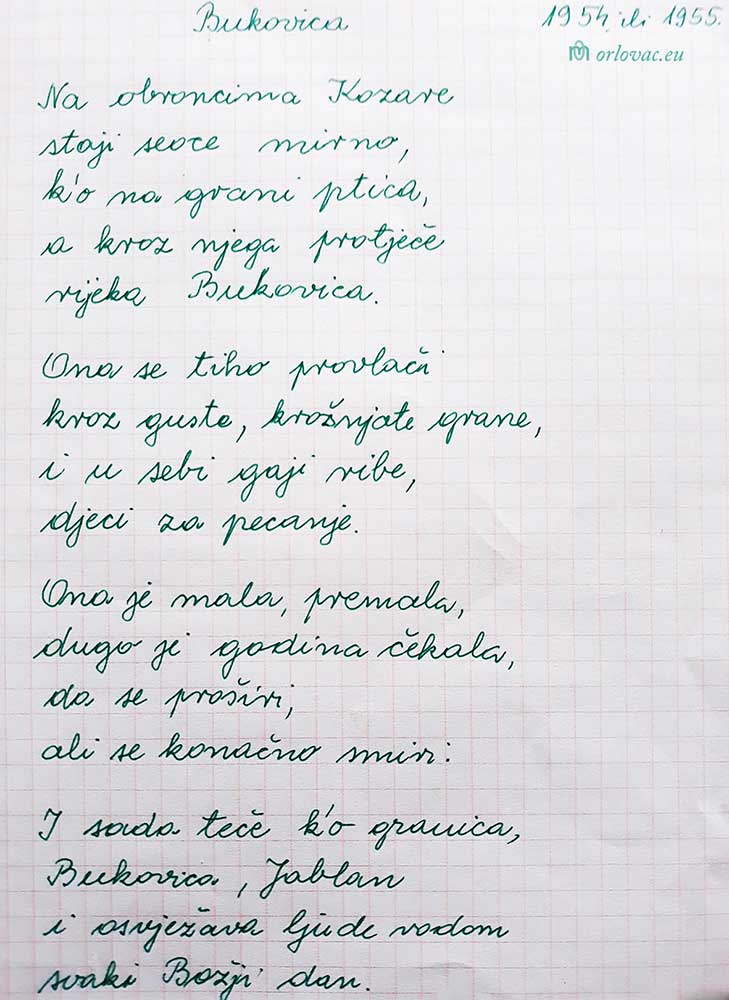 Bukovica 1954. ili 1955.
orlovac.eu
Na obroncima Kozare
stoji seoce mirno,
k'o na grani ptica,
a kroz njega protječe
rijeka Bukovica.
Ona se tiho provlači
kroz guste, krošnjate grane,
i u sebi gaji ribe,
djeci za pecanje.
Ona je mala, premala,
dugo je godina čekala,
da se proširi,
ali se konačno smiri:
I sada teče k'o granica,
Bukovica, Jablan
i osvježava ljude vodom
svaki Božji dan.